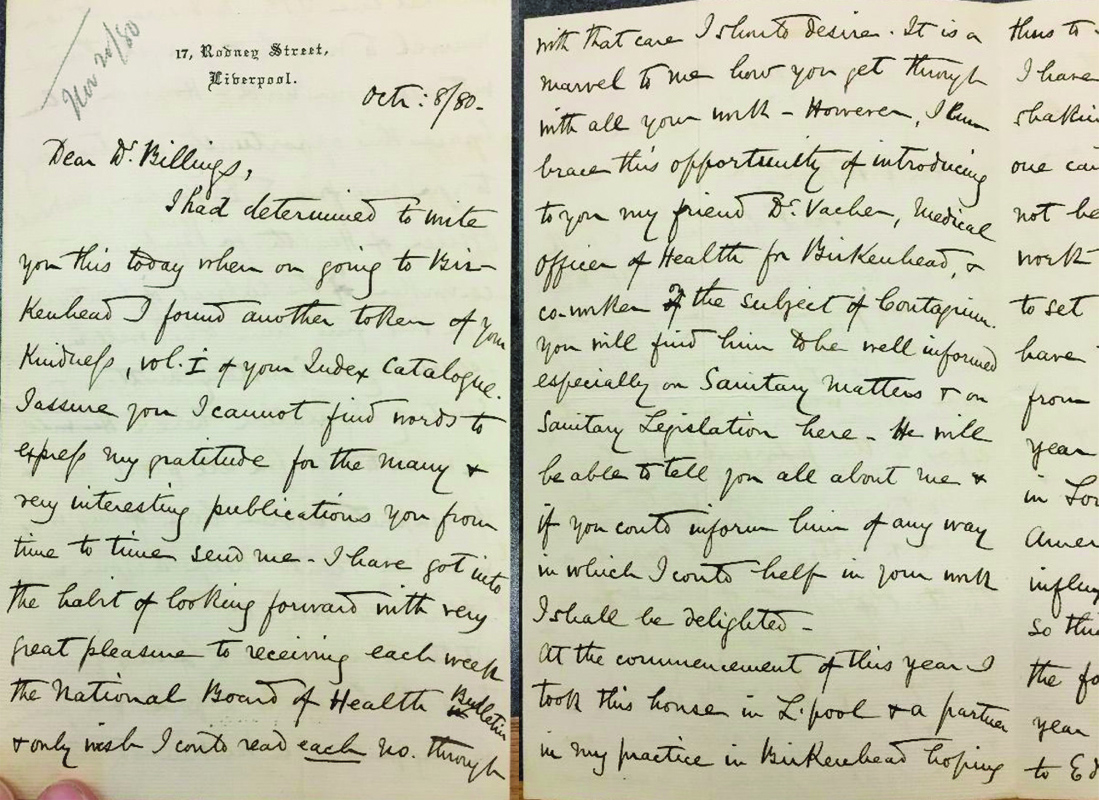 Nov 20/80
17, Rodney Street,
Liverpool.
Oct: 8/80.
Dear Dr. Billings,
I had determined to write
you this today when on going to Bir-
kenhead I found another token of your
kindness, vol. I of your Index Catalogue.
I assure you I cannot find words to
express my gratitude for the many &
very interesting publications you from
time to time send me. I have got into
the habit of looking forward with very
great pleasure to receiving each week
the National Board of Health Bulletin
& only wish I could read each no. through
with that care I should desire. It is a
marvel to me how you get through
with all your work - However, I em
brace this opportunity of introducing
to you my friend Dr. Vacher, Medical
officer of Health for Birkenhead, &
co-worker on the subject of Contagium.
You will find him to be well informed
especially on Sanitary Matters & on
Sanitary Legislation here - He will
be able to tell you all about me &
if you could inform him of any way
in which I could help in your work
I shall be delighted -
At the commencement of this year I
took this house in L.pool & a partner
in my practice in Birkenhead hoping
thus to
I have
shakin
one ca
not be
work
to set
have
from
year
in Lo
Amer
influ
so thi
the fo
year
to Ed